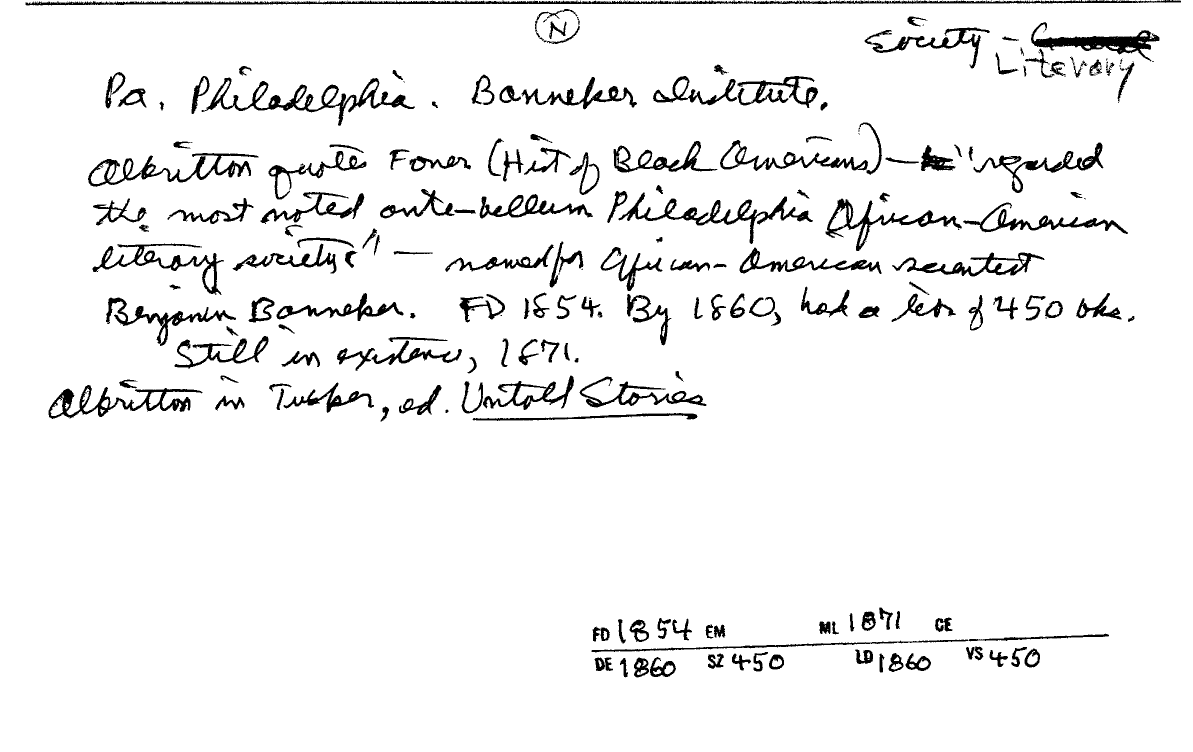 N
Society - General
Literary
Pa. Philadelphia. Banneker Institute.
Albritton quotes Foner (Hist of Black Americans) — "regarded
the most noted ante-bellum Philadelphia African-American
literary society" — named for African-American scientist
Benjamin Banneker. FD 1854. By 1860, had a libr of 450 bks.
Still in existence, 1871.
Albritton in Tucker, ed. Untold Stories
FD 1854 EM ML 1871 CE
DE 1860 SZ 450 LD 1860 VS 450